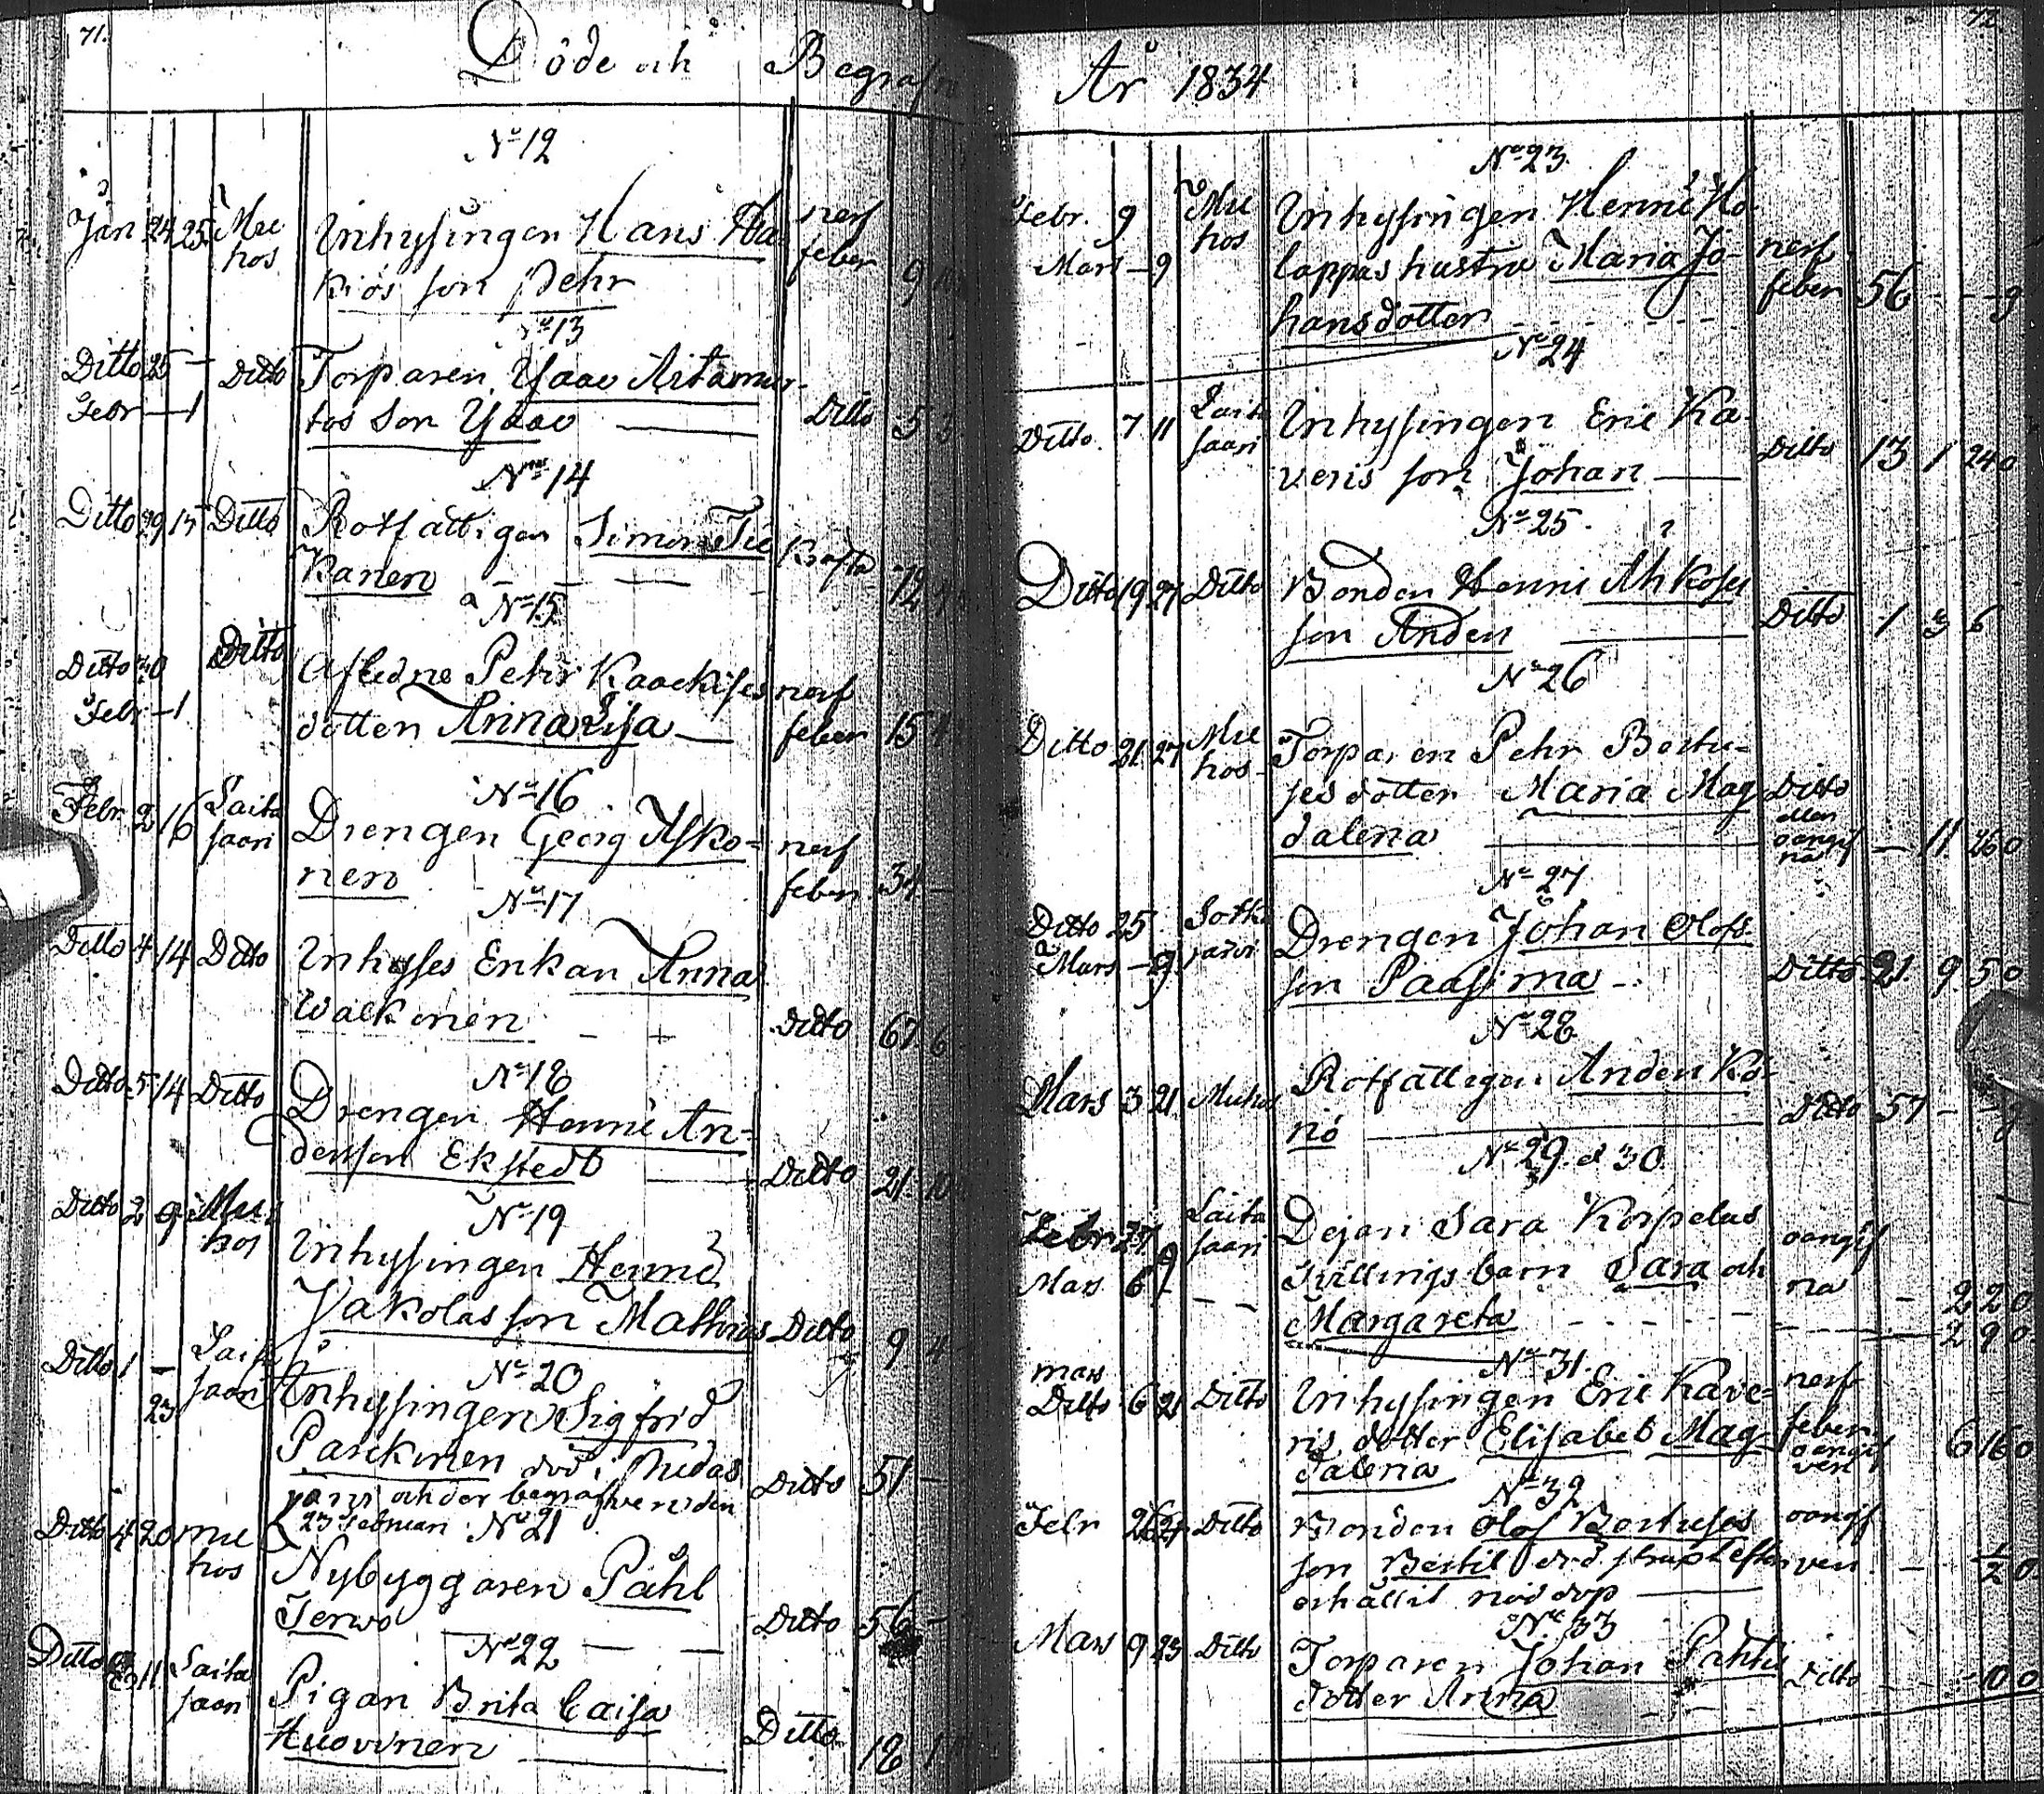 71.
Döde och Begrafn
N° 12
Jan 24 25 Mu
hos
Inhysingen Hans
kiös son Pehr
nerf
feber
9
N° 13
Ditto 25 — Ditto
Febr — 1
Torparen Isaac Aitamur-
tos Son Isaac
Ditto
5 3
N° 14
Ditto 29 15 Ditto
Rotfattigen Simon Tie
kanen
72
N° 15
Ditto 30 Ditto
Febr — 1
Afledne Pehr
dotter Anna Lisa —
nerf
feber
15
N° 16
Febr. 2 16 Laita
saari
Drengen Georg Asko-
nen
nerf
feber
34 —
N° 17
Ditto 4 14 Ditto
Inhyses Enkan Anna
Ditto
67 6
N° 18
Ditto 5 14 Ditto
Drengen Henric An-
dersson Ekstedt
Ditto
21 10
N° 19
Ditto 2 9 Mu
hos
Inhysingen Henric
Jakolas son Mathias
Ditto
9 4
N° 20
Ditto 1 —
23
Laita
saari
Inhysingen Sigfrid
Parckinen död i Pudas
järvi och der begrafven den
23 Februari
Ditto
51 —
N° 21
Ditto 4 20 mu
hos
Nybyggaren Påhl
Terwo
Ditto
56 —
N° 22
Ditto 11. Laita
saari
Pigan Brita Caisa
Huovinen
Ditto
18 1
72
År 1834
N° 23
Febr. 9
Mars — 9
Mu
hos
Inhysingen Henric Ho-
lappas hustru Maria Jo-
hansdotter
nerf
feber
56 — — 9
N° 24
Ditto. 7 11 Laita
saari
Inhysingen Eric Ka-
veris son Johan —
Ditto
13 1 24 0
N° 25
Ditto 19 27 Ditto
Bonden Henric Ahkoses
son Anders
Ditto
1 3 6
N° 26
Ditto 21 27 Mu
hos
Torparen Pehr Bertu-
ses dotter Maria Mag
dalena
Ditto
eller
oangif
na
— 11 26 0
N° 27
Ditto 25
Mars — 9
Sotka
järvi
Drengen Johan Olofs
son Paasima
Ditto
21 9 5 0
N° 28
Mars 3 21 Muhos
Rotfattigen Anders Kö-
nö
Ditto
57 —
N° 29. & 30
Febr 27
Mars 6 9
Laita
saari
Dejan Sara Korpelas
tvillings barn Sara och
Margareta
oangif
na
— 2 2 0
— 2 9 0
N° 31.
mars
Ditto 6 21 Ditto
Inhysingen Eric Kave-
ris dotter Elisabet Mag-
dalena
nerf
feber
oangif
ven
6 16 0
N° 32
Febr 26 21 Ditto
Bonden Olof Bertuses
son Bertil död strax efter
erhållit nöddop
oangif
ven
— ½ 0
N° 33
Mars 9 23 Ditto
Torparen Johan Pahtis
dotter Anna
Ditto
— 10 0